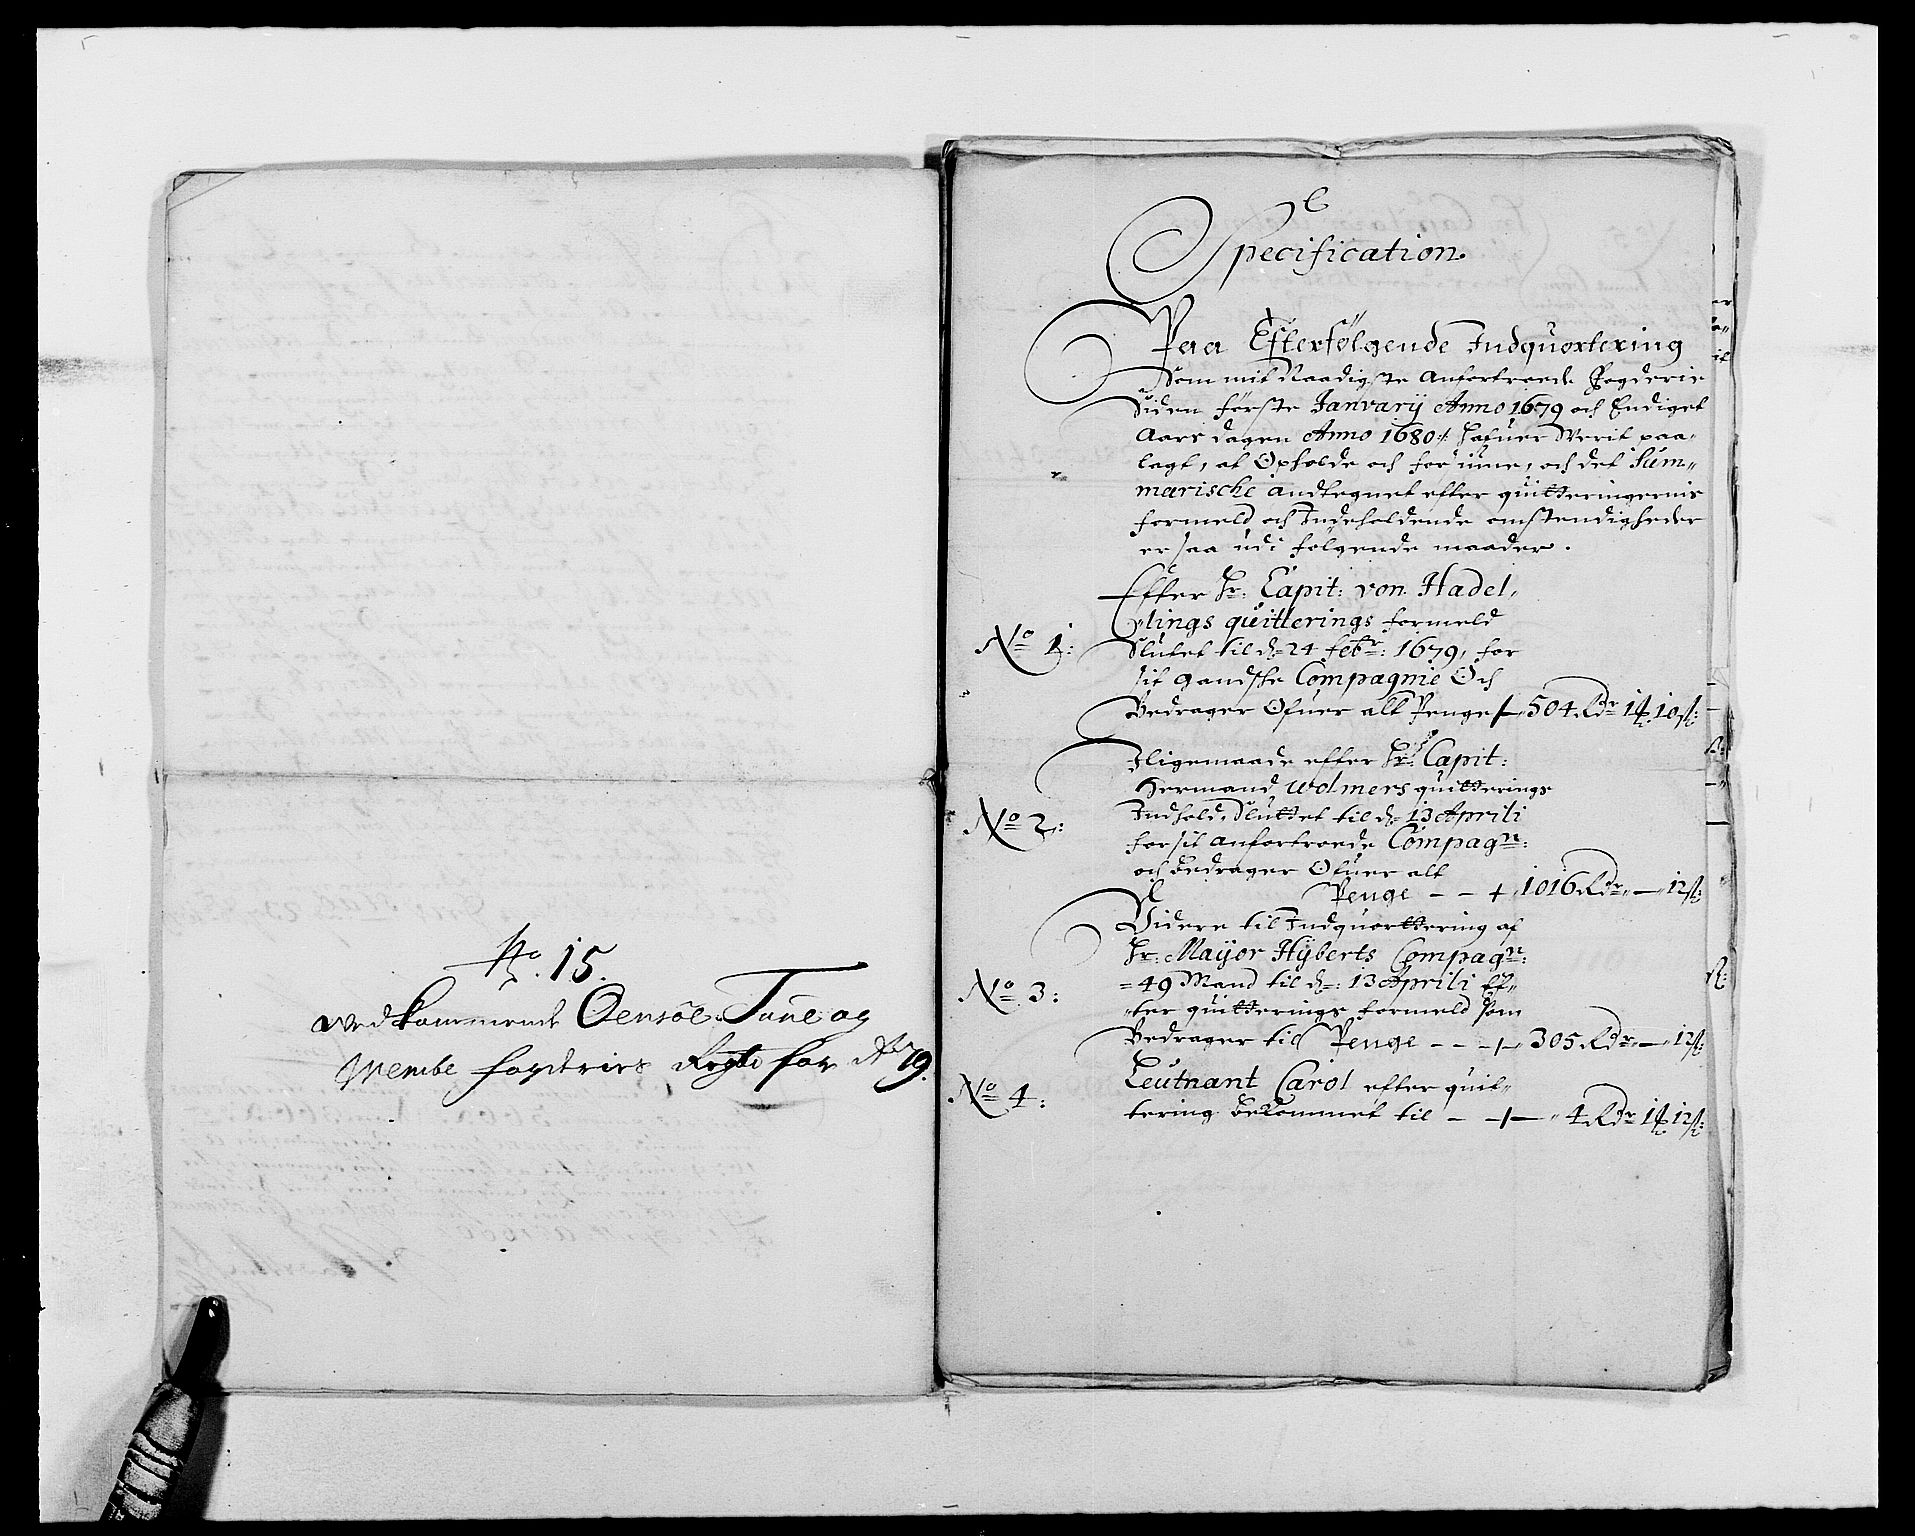 No. 15.
Vedkommende Oensöe Tune og
Wembe fogdries Regnb for Ao 79.
Specification
Paa Efterfölgende Indquortering
Som mit Naadigste Anfortroede Fogderie
Siden förste Janvarij Anno 1679 och Endiget
Aars dagen Anno 1680: hafuer Verit paa-
lagt, at Opholde och for ume, och det Sum-
marische andtegnet efter quitteringernis
formeld och Indeholdende omstendigheder
er saa udi folgende maader.
Efter Hr: Capit: von Hadel,
lings quitterings formeld
No 1: Slutet til d= 24 febr: 1679, for
sit gandske Compagnie Och
Bedrager Ofuer alt Penge 504 Rdr 1 ꝭ 10 ß:
Iligemaade efter Hr: Capit:
Hermand Wolmers quitterings
No 2: Indhold, Sluttet til d= 13 Aprili
for sit anfortroede Compagn:
och bedrager Ofuer alt
Penge - - 1016 Rdr - 12 ß:
Videre til Indquortering af
Hr: Mayor Hÿberts Compagn:
No 3: = 49 Mand til d=: 13 Aprili Ef-
ter quitterings formeld som
Bedrager til Penge - - 305 Rdr - 12 ß:
No 4: Leutnant Carol efter quit-
tering bekommet til - - 4 Rdr 1 ꝭ 12 ß: